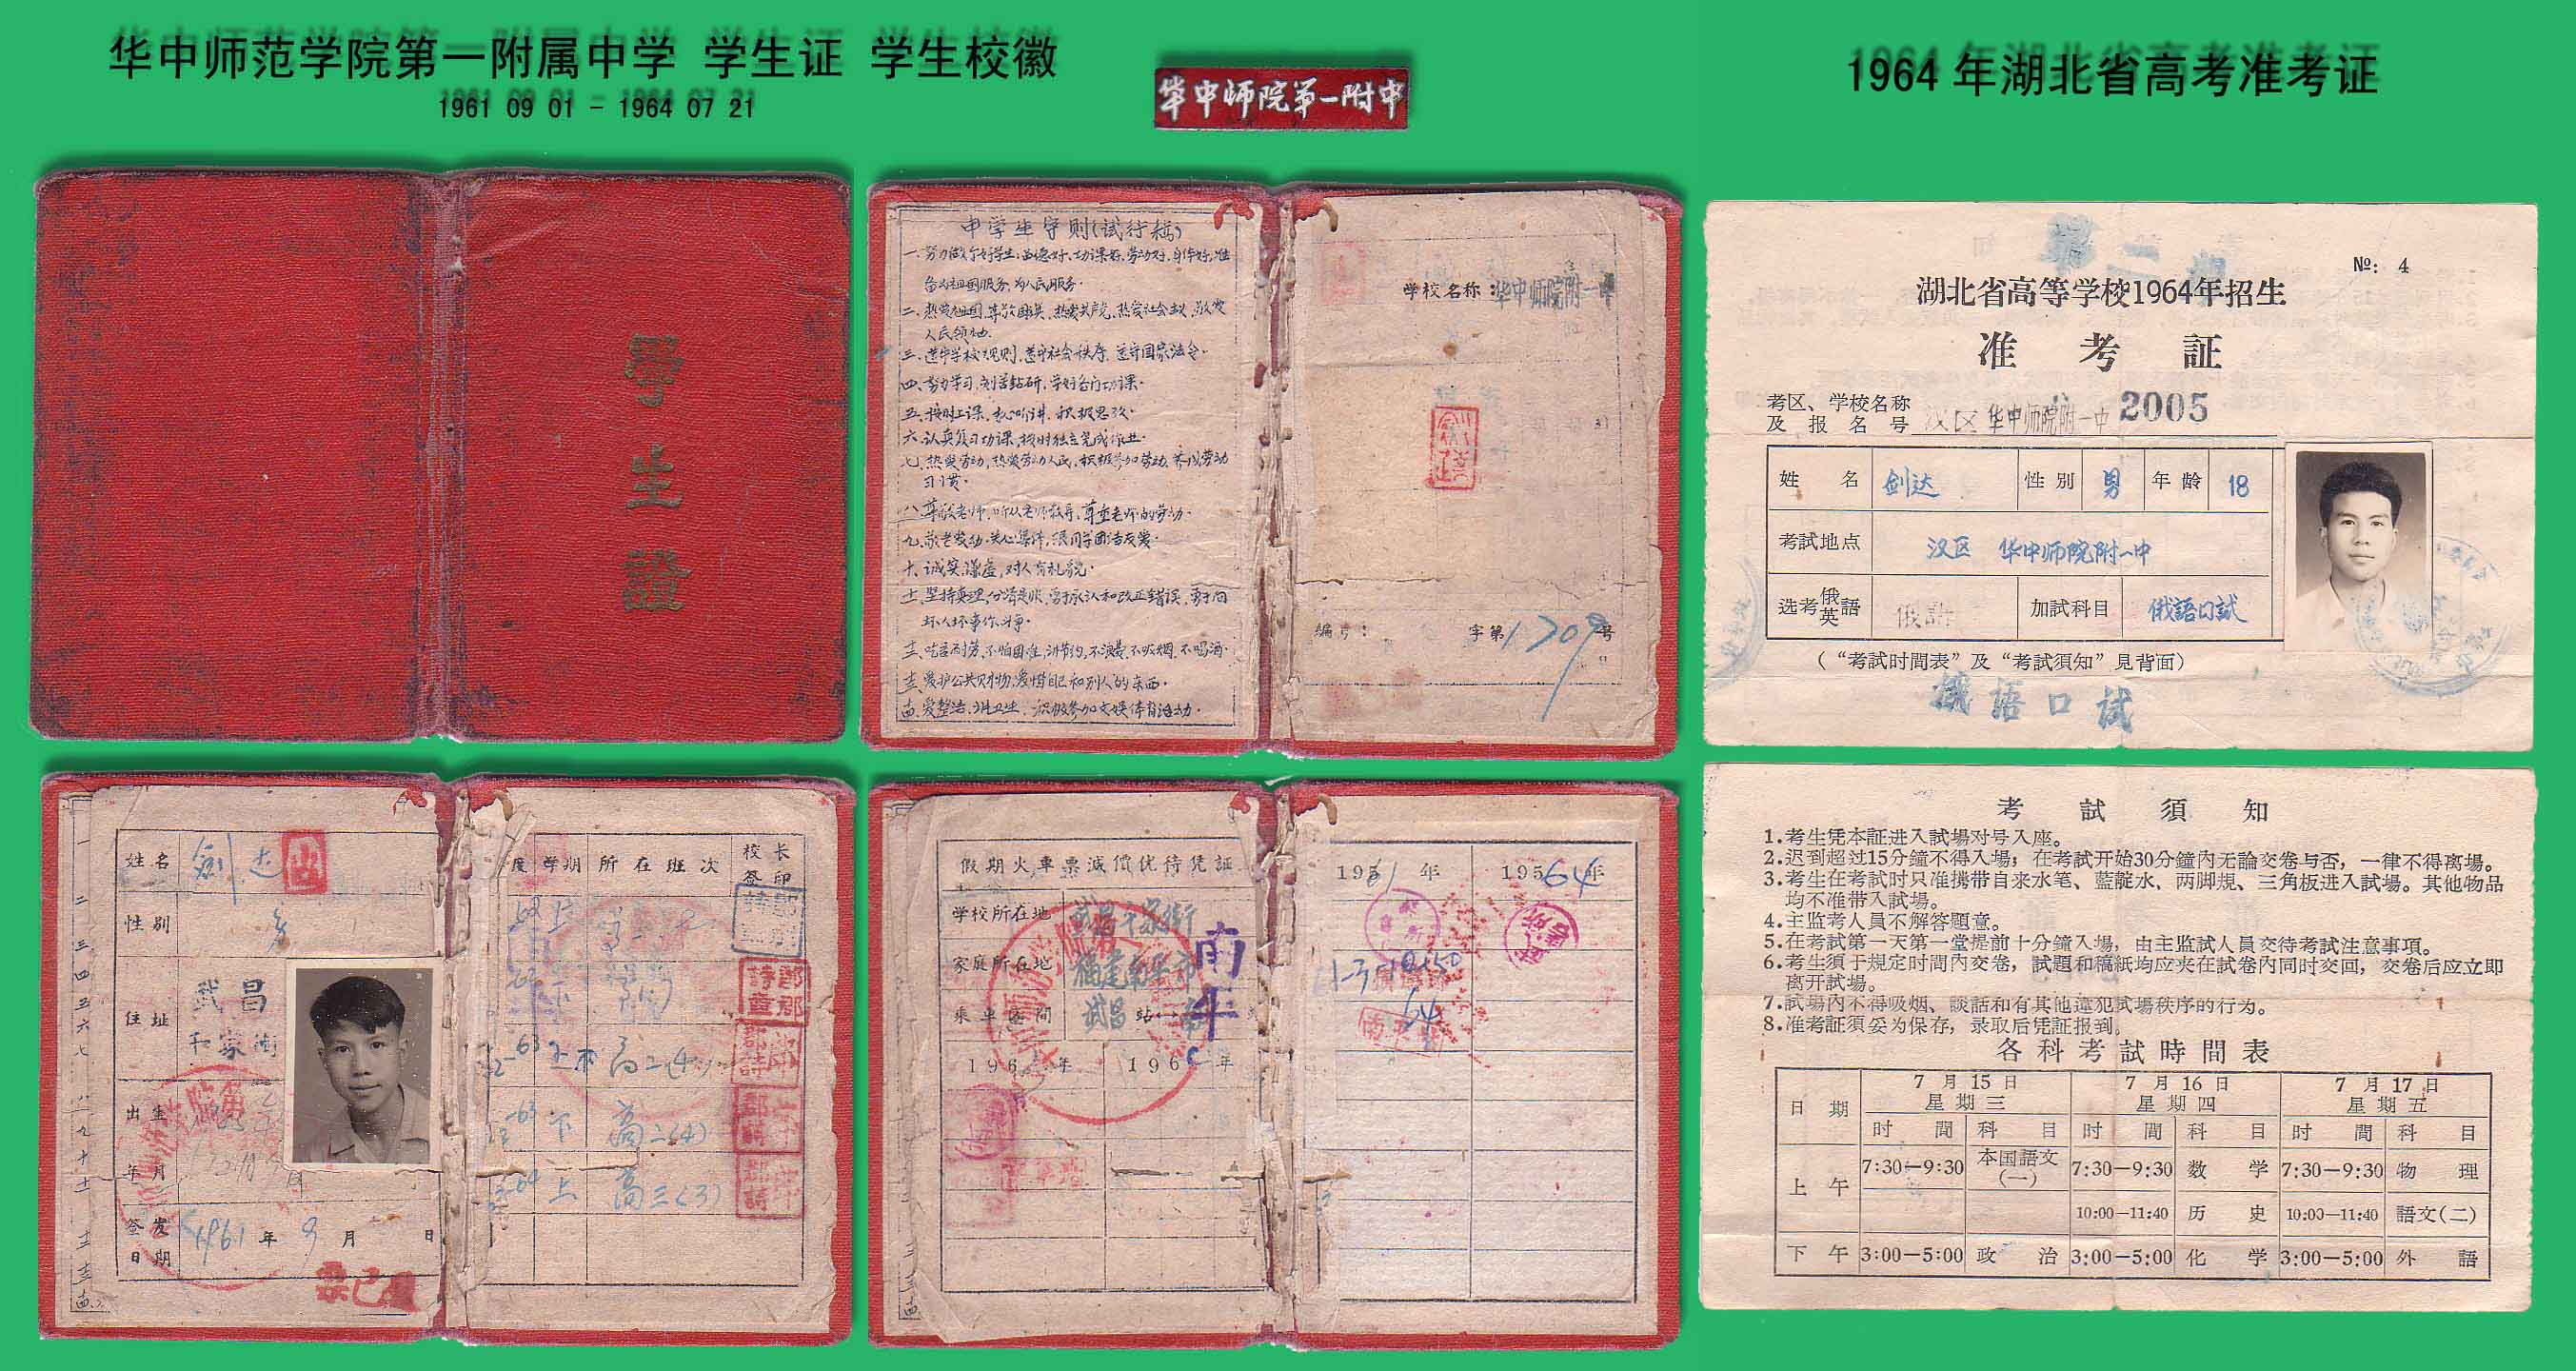 华中师范学院第一附属中学 学生证 学生校徽
1961 09 01 - 1964 07 21
华中师院第一附中
1964 年湖北省高考准考证
學生證
中学生守则(试行稿)
一、努力做个好学生:品德好、功课好、劳动好、身体好,准
备为祖国服务,为人民服务.
二、热爱祖国,尊敬国旗,热爱共产党,热爱社会主义,敬爱
人民领袖.
三、遵守学校规则,遵守社会秩序,遵守国家法令.
四、努力学习,刻苦钻研,学好各门功课.
五、按时上课,专心听讲,积极思考.
六、认真复习功课,按时独立完成作业.
七、热爱劳动,热爱劳动人民,积极参加劳动,养成劳动
习惯.
八、尊敬老师,听从老师教导,尊重老师的劳动.
九、敬老爱幼,关心集体,跟同学团结友爱.
十、诚实,谦虚,对人有礼貌.
十一、坚持真理,分清是非,勇于承认和改正错误,勇于同
坏人坏事作斗争.
十二、吃苦耐劳,不怕困难,讲节约,不浪费,不吸烟,不喝酒.
十三、爱护公共财物,爱惜自己和别人的东西.
十四、爱整洁,讲卫生,积极参加文娱体育活动.
学校名称:华中师院附一中
编号: 字第1709号
№: 4
湖北省高等学校1964年招生
准考証
考区、学校名称
及报名号 汉区 华中师院附一中 2005
姓名 剑达 性别 男 年龄 18
考試地点 汉区 华中师院附一中
选考俄英語 俄語 加試科目 俄語口試
(“考試时間表”及“考試須知”見背面)
俄語口試
姓名 剑达
性别 男
住址 武昌
出生
年月
签发日期 1961年9月 日
度 学期 所在班次 校长签印
63 上下 高二(4)
63 下 高二(4)
64 上 高三(3)
假期火車票減價优待凭証
学校所在地 武昌
家庭所在地 福建南平市
乘車区間 武昌 站↔南平
196 年 196 年
1961 年 1964年
考試須知
1.考生凭本証进入試場对号入座。
2.迟到超过15分鐘不得入場;在考試开始30分鐘內无論交卷与否,一律不得离場。
3.考生在考試时只准携带自来水笔、藍靛水、两脚規、三角板进入試場。其他物品
均不准带入試場。
4.主监考人員不解答題意。
5.在考試第一天第一堂提前十分鐘入場,由主监試人員交待考試注意事項。
6.考生須于規定时間內交卷,試題和稿紙均应夹在試卷內同时交回,交卷后应立即
离开試場。
7.試場內不得吸烟、談話和有其他違犯試場秩序的行为。
8.准考証須妥为保存,录取后凭証报到。
各科考試時間表
日期 7月15日 星期三 7月16日 星期四 7月17日 星期五
时間 科目 时間 科目 时間 科目
上午 7:30—9:30 本国語文(一) 7:30—9:30 数学 7:30—9:30 物理
10:00—11:40 历史 10:00—11:40 語文(二)
下午 3:00—5:00 政治 3:00—5:00 化学 3:00—5:00 外語